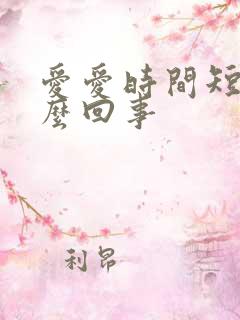 愛愛時間短
麼回事
利昂